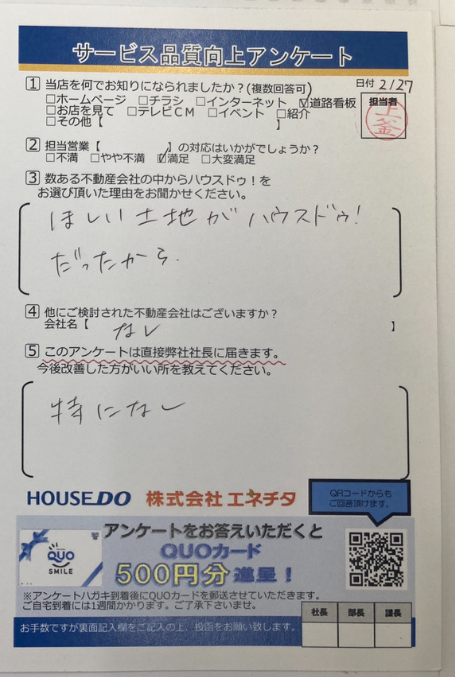 サービス品質向上アンケート
1 当店を何でお知りになられましたか?(複数回答可) 日付 2/27
□ホームページ □チラシ □インターネット ☑道路看板 担当者
□お店を見て □テレビCM □イベント □紹介
□その他【 】
2 担当営業【 】の対応はいかがでしょうか?
□不満 □やや不満 ☑満足 □大変満足
3 数ある不動産会社の中からハウスドゥ!を
お選び頂いた理由をお聞かせください。
ほしい土地がハウスドゥ!
だったから.
4 他にご検討された不動産会社はございますか?
会社名【 なし 】
5 このアンケートは直接弊社社長に届きます。
今後改善した方がいい所を教えてください。
特になし
HOUSE DO 株式会社 エネチタ
QRコードからも
ご回答頂けます。
アンケートをお答えいただくと
QUOカード
500円分 進呈!
QUO
SMILE
※アンケートハガキ到着後にQUOカードを郵送させていただきます。
ご自宅到着には1週間かかります。ご了承下さいませ。
お手数ですが裏面記入欄をご記入の上、投函をお願い致します。
社長 部長 課長